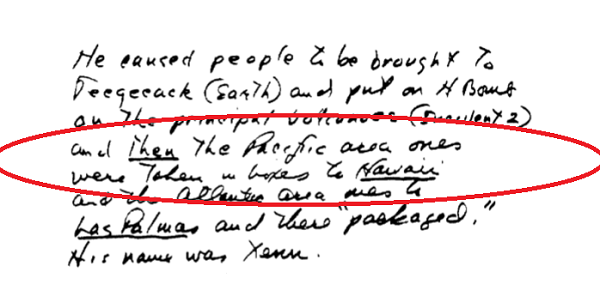 He caused people to be brought to
Teegeeack (Earth) and put an H Bomb
on the principal volcanoes (Incident 2)
and then the Pacific area ones
were taken in boxes to Hawaii
and the Atlantic area ones to
Las Palmas and there "packaged."
His name was Xenu.